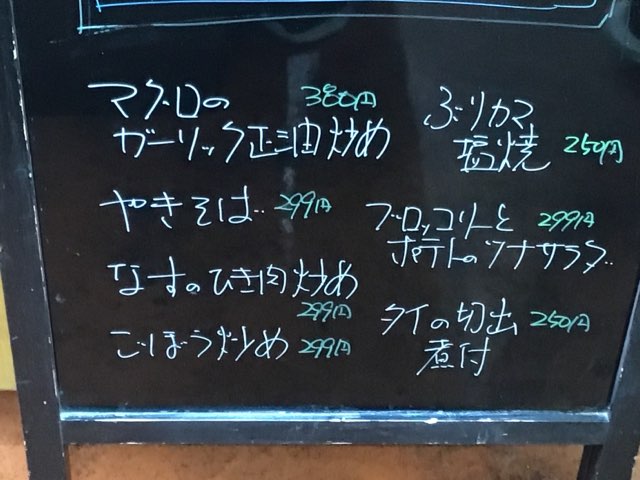 マグロの 380円
ガーリック正油炒め
やきそば 299円
なすのひき肉炒め
299円
ごぼう炒め 299円
ぶりカマ
塩焼 250円
ブロッコリーと 299円
ポテトのツナサラダ
タイの切出 250円
煮付